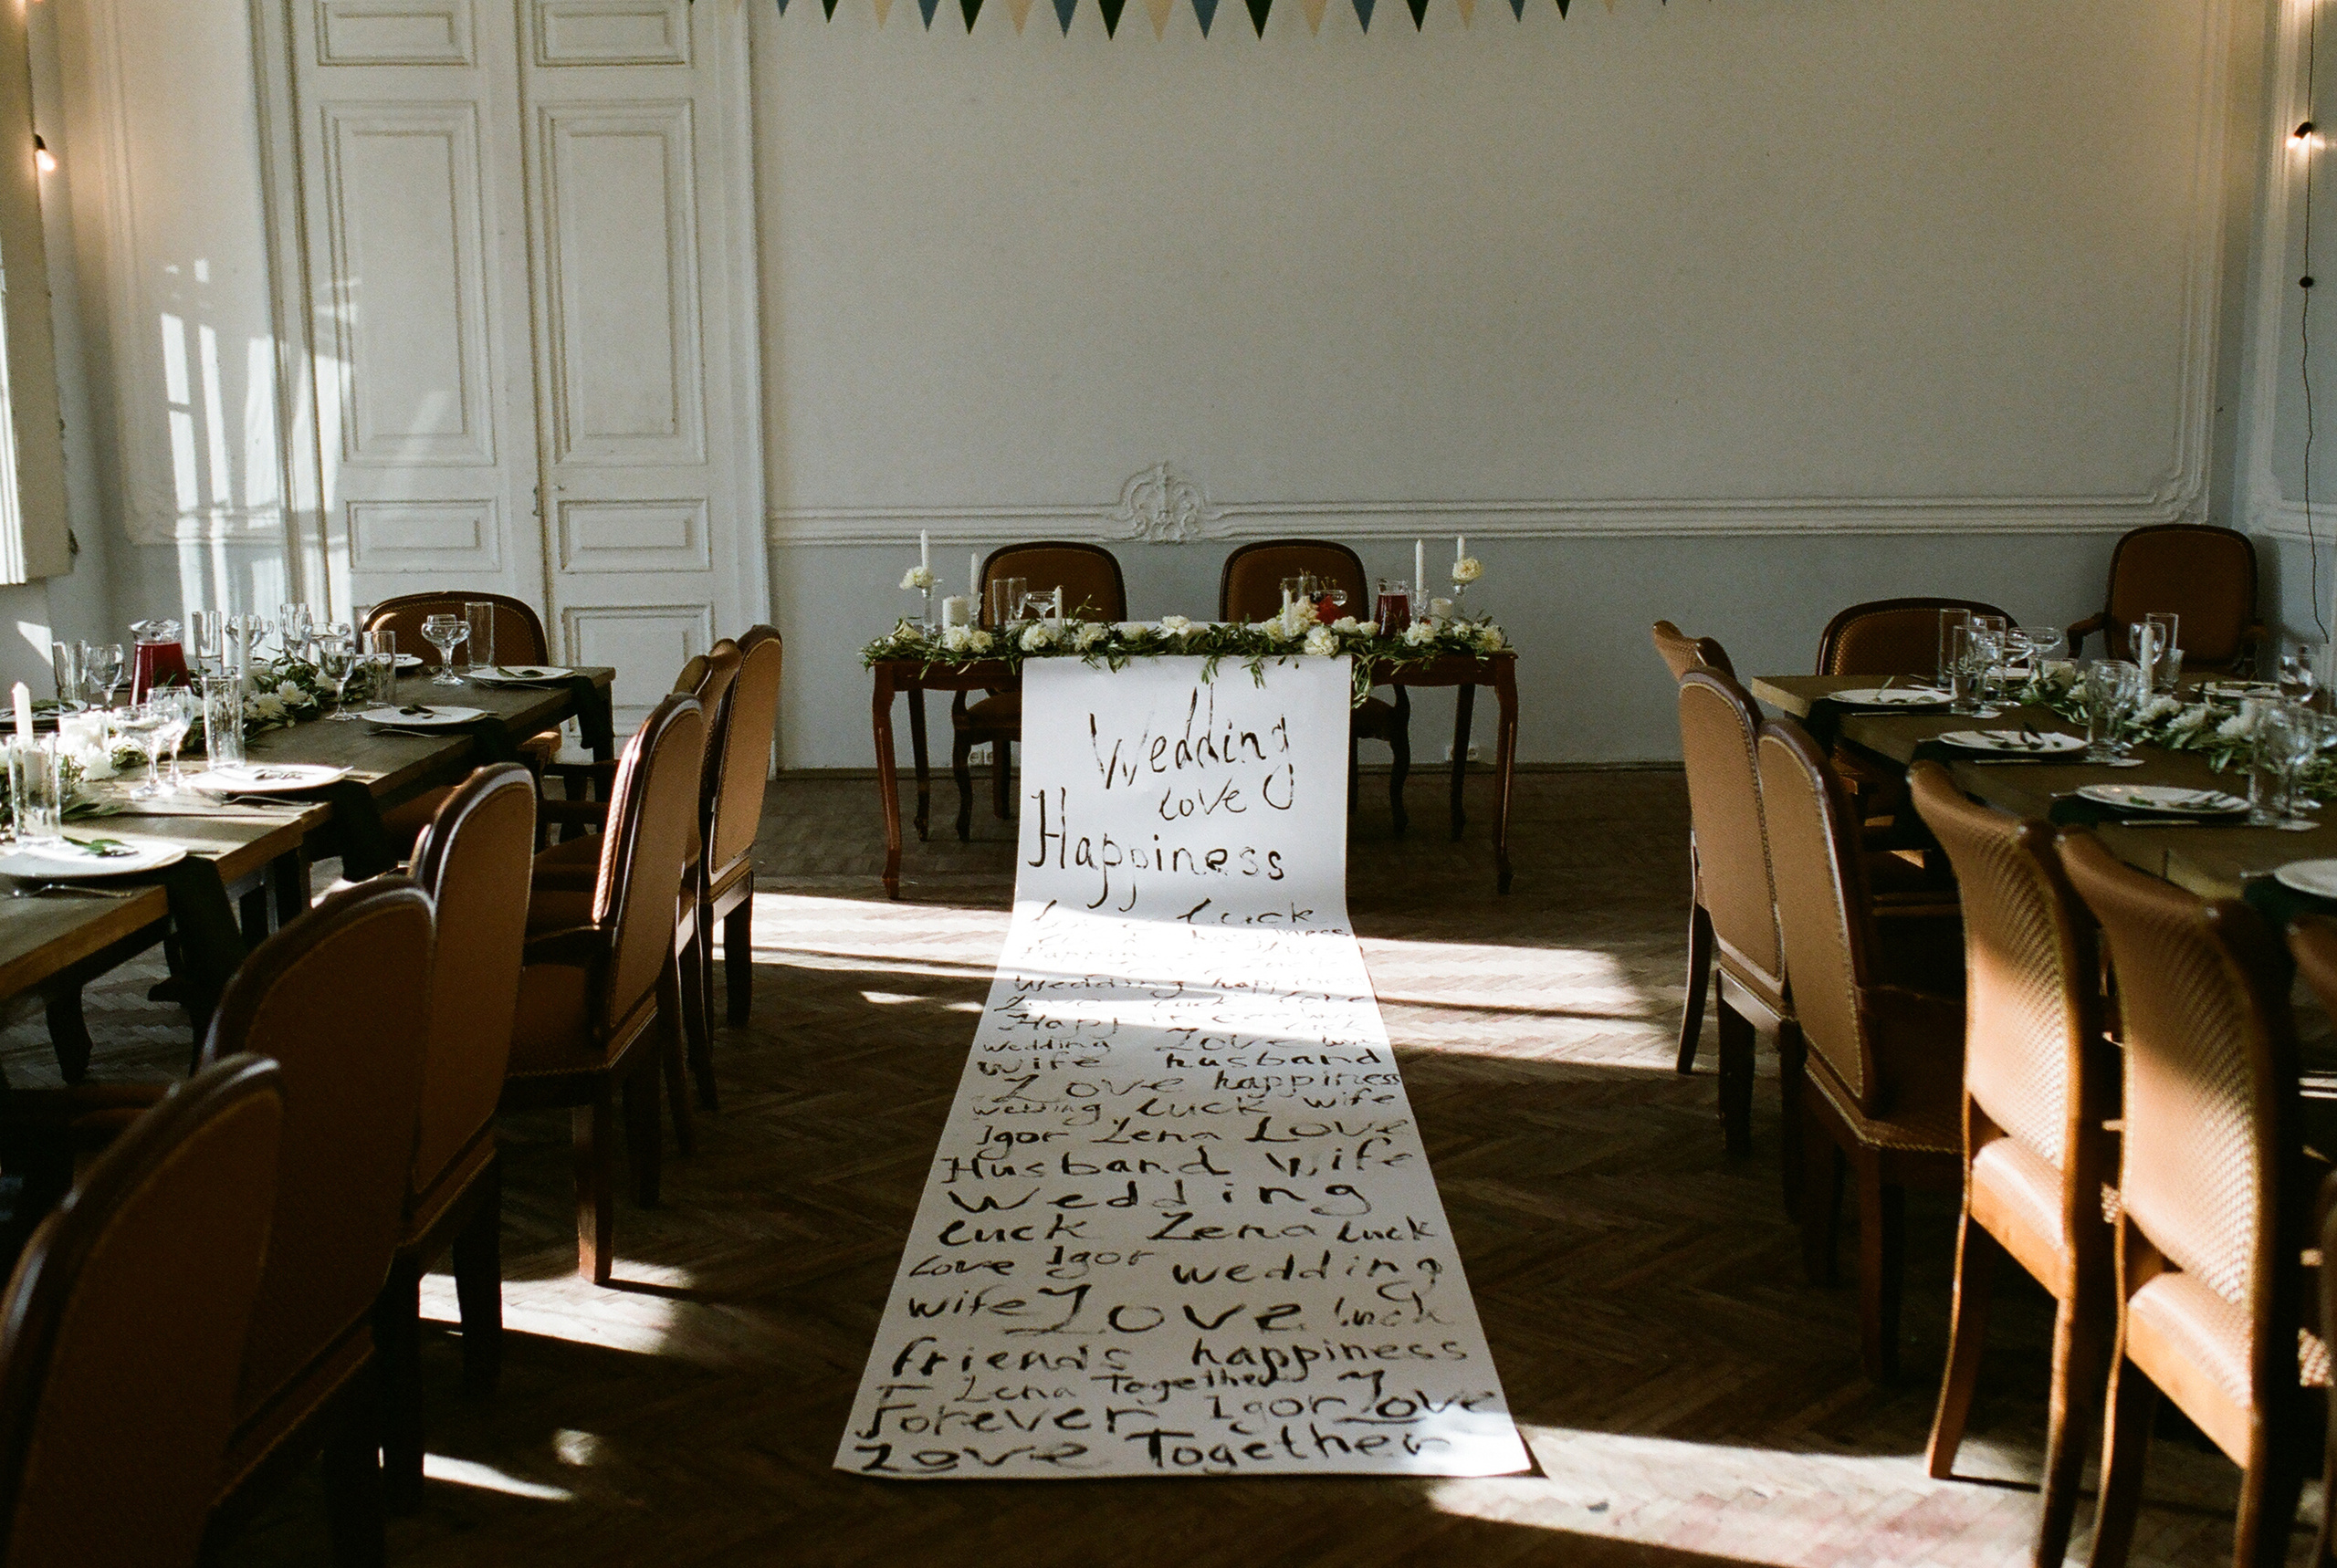 Wedding
Love
Happiness
Luck
Wedding happiness
Love luck Love
Wedding Love
Wife husband
Love happiness
wedding Luck wife
Igor Lena Love
Husband Wife
Wedding
Luck Lena Luck
Love Igor wedding
wife Love luck
friends happiness
Lena Together
Forever Igor Love
Love Together